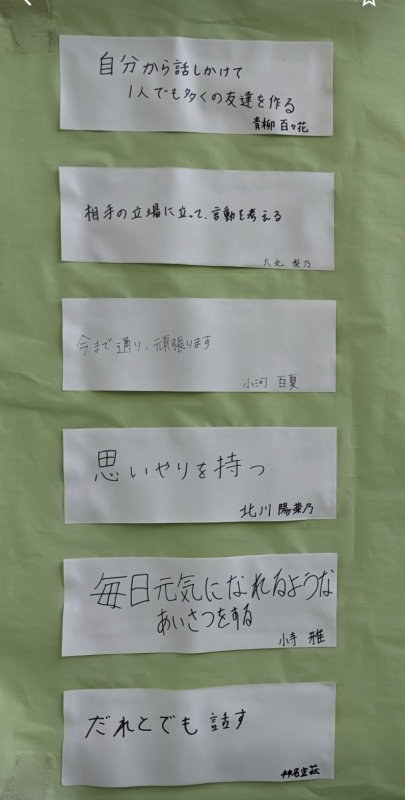 自分から話しかけて
1人でも多くの友達を作る
青柳 百々花
相手の立場に立って、言動を考える
大北 梨乃
今まで通り、頑張ります
小河 百夏
思いやりを持つ
北川 陽菜乃
毎日元気になれるような
あいさつをする
小寺 雅
だれとでも 話す